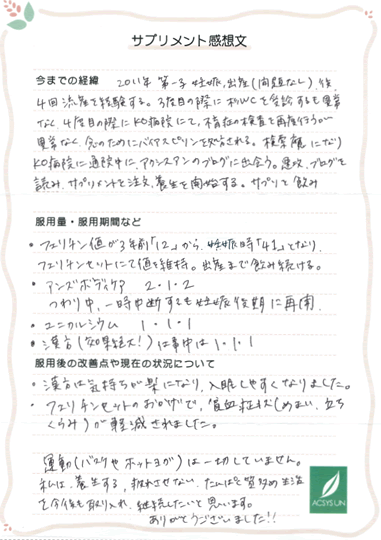 サプリメント感想文
今までの経緯 2011年 第一子 妊娠、出産(問題なし)、後、
4回流産を経験する。3度目の際に杉WCを受診するも異常
なく、4度目の際にKO病院にて、不育症の検査を再度行うが
異常なく、念のためにバイアスピリンを処方される。検査魔になり
KO病院に通院中に、アクシスアンのブログに出会う。速攻、ブログを
読み、サプリメントを注文、養生を開始する。サプリを飲み
服用量・服用期間など
・フェリチン値が3年前「12」から、妊娠時「41」となり、
フェリチンセットにて値を維持。出産まで飲み続ける。
・アンズボディケア 2・1・2
つわり中、一時中断するも妊娠後期に再開
・ユニカルシウム 1・1・1
・漢方(効果絶大!)は事中は1・1・1
服用後の改善点や現在の状況について
・漢方は気持ちが楽になり、入眠しやすくなりました。
・フェリチンセットのおかげで、貧血症状(めまい、立ち
くらみ)が軽減されました。
運動(バスケやホットヨガ)は一切していません。
私は、養生する、疲れさせない、たんぱく質多め生活
を今後も取り入れ、継続したいと思います。
ありがとうございました!!
ACSYSUN